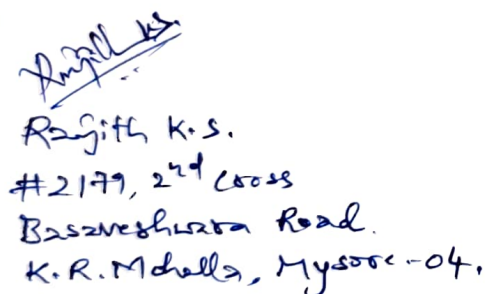 Ranjith K.S.
Ranjith K.S.
#2179, 2nd Cross
Basaveshwara Road.
K.R.Mohalla, Mysore.-04.